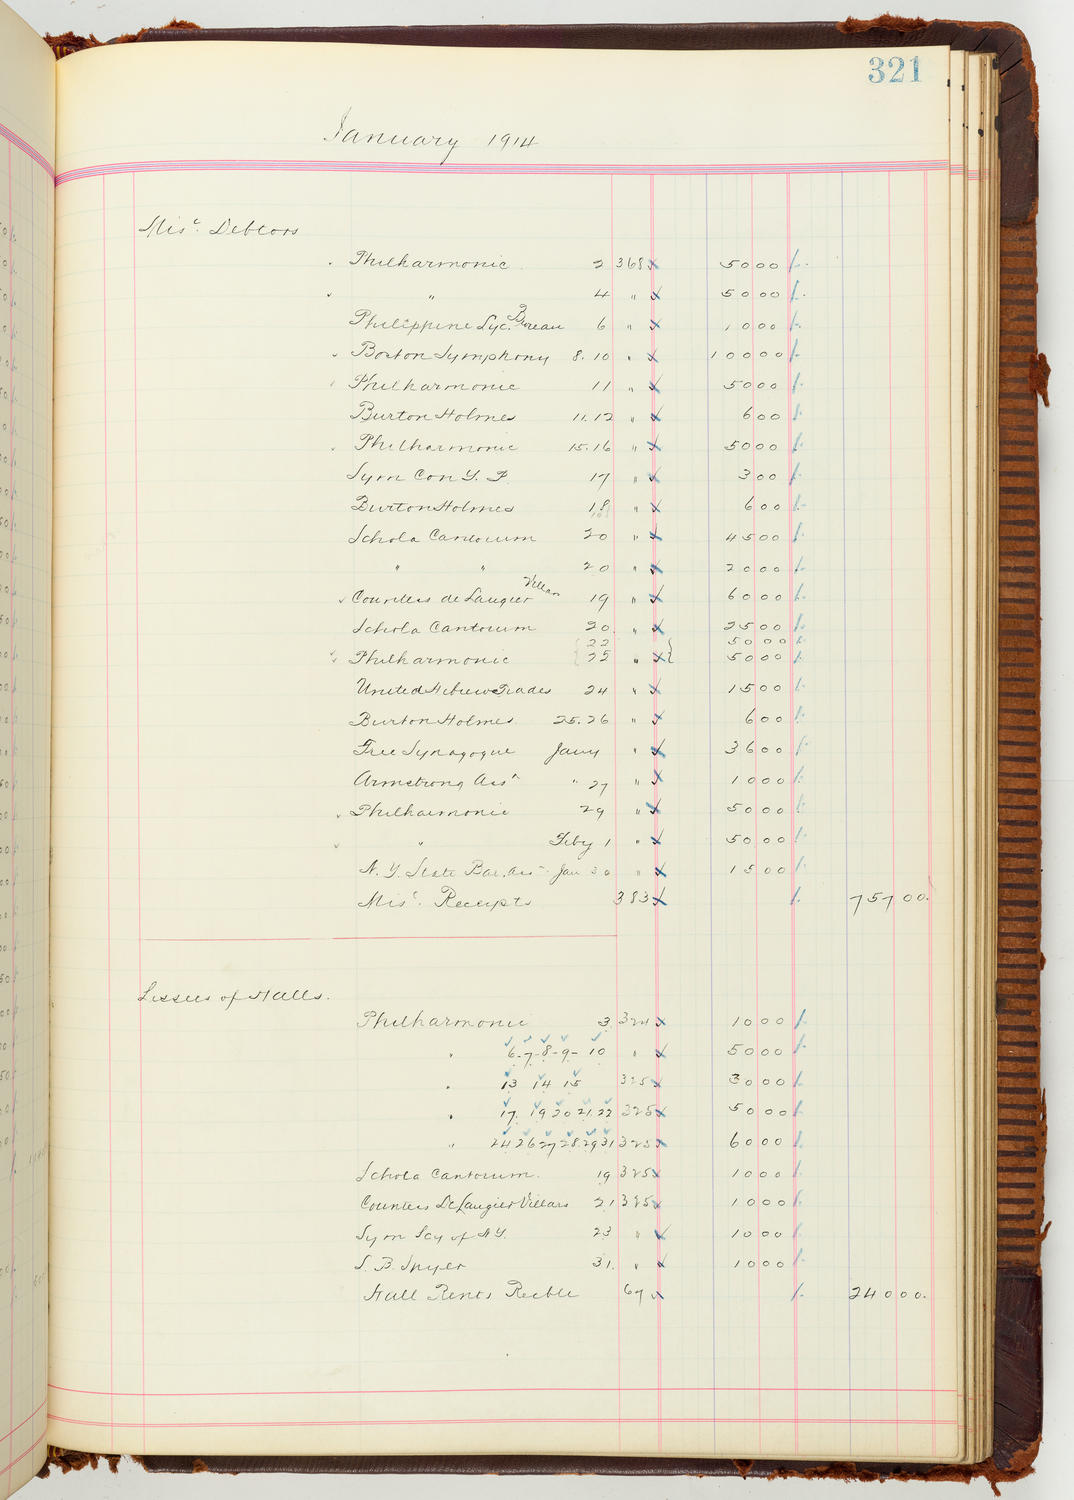 321
January 1914
Misc. Debtors
Philharmonic 2 368 5000
" 4 " 5000
Philippine Lyc. Bureau 6 " 1000
Boston Symphony 8.10 " 10000
Philharmonic 11 " 5000
Burton Holmes 11.12 " 600
Philharmonic 15.16 " 5000
Sym Con Y. P. 17 " 300
Burton Holmes 18 " 600
Schola Cantorum 20 " 4500
" " 20 " 2000
Countess de Laugier Villars 19 " 6000
Schola Cantorum 20 " 2500
22 5000
Philharmonic 25 " 5000
United Hebrew Trades 24 " 1500
Burton Holmes 25.26 " 600
Free Synagogue Jany " 3600
Armstrong Assn " 27 " 1000
Philharmonic 29 " 5000
" Feby 1 " 5000
N.Y. State Bar. Ass Jan 30 " 1500
Misc. Receipts 383 75700.
Lessees of Halls.
Philharmonic 3. 324 1000
" 6-7-8-9-10 " 5000
" 13 14 15 325 3000
" 17. 19 20 21.22 325 5000
" 24 26 27 28.29 31 325 6000
Schola Cantorum. 19 325 1000
Countess De Laugier Villars 21 325 1000
Sym Scy of N.Y. 23 " 1000
S. B. Spyer 31. " 1000
Hall Rents Recble 67 24000.